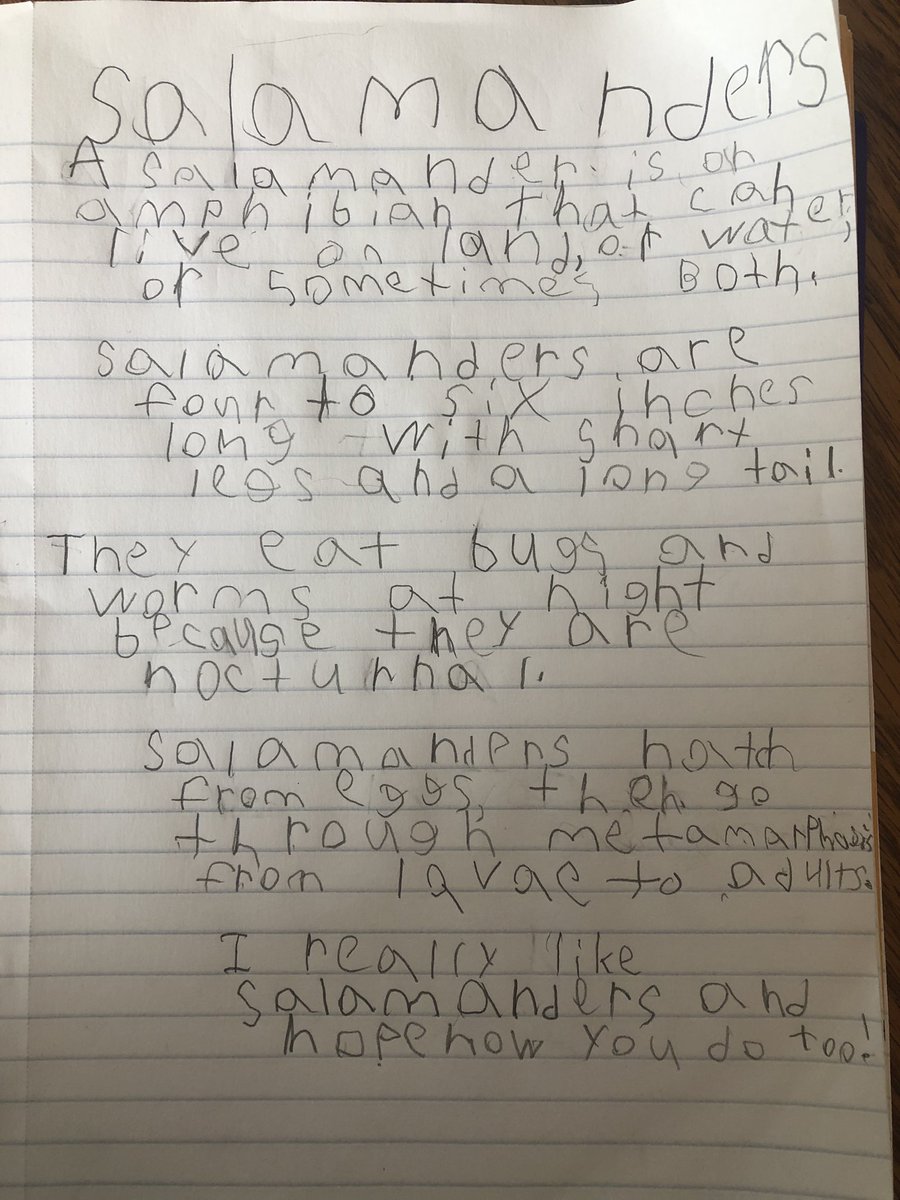 Salamanders
A salamander is an
amphibian that can
live on land, or water,
or sometimes Both.
Salamanders are
four to six inches
long with short
legs and a long tail.
They eat bugs and
worms at night
because they are
nocturnal.
Salamanders hatch
from eggs, then go
through metamarphosis
from lavae to adults.
I really like
salamanders and
hope now you do too!